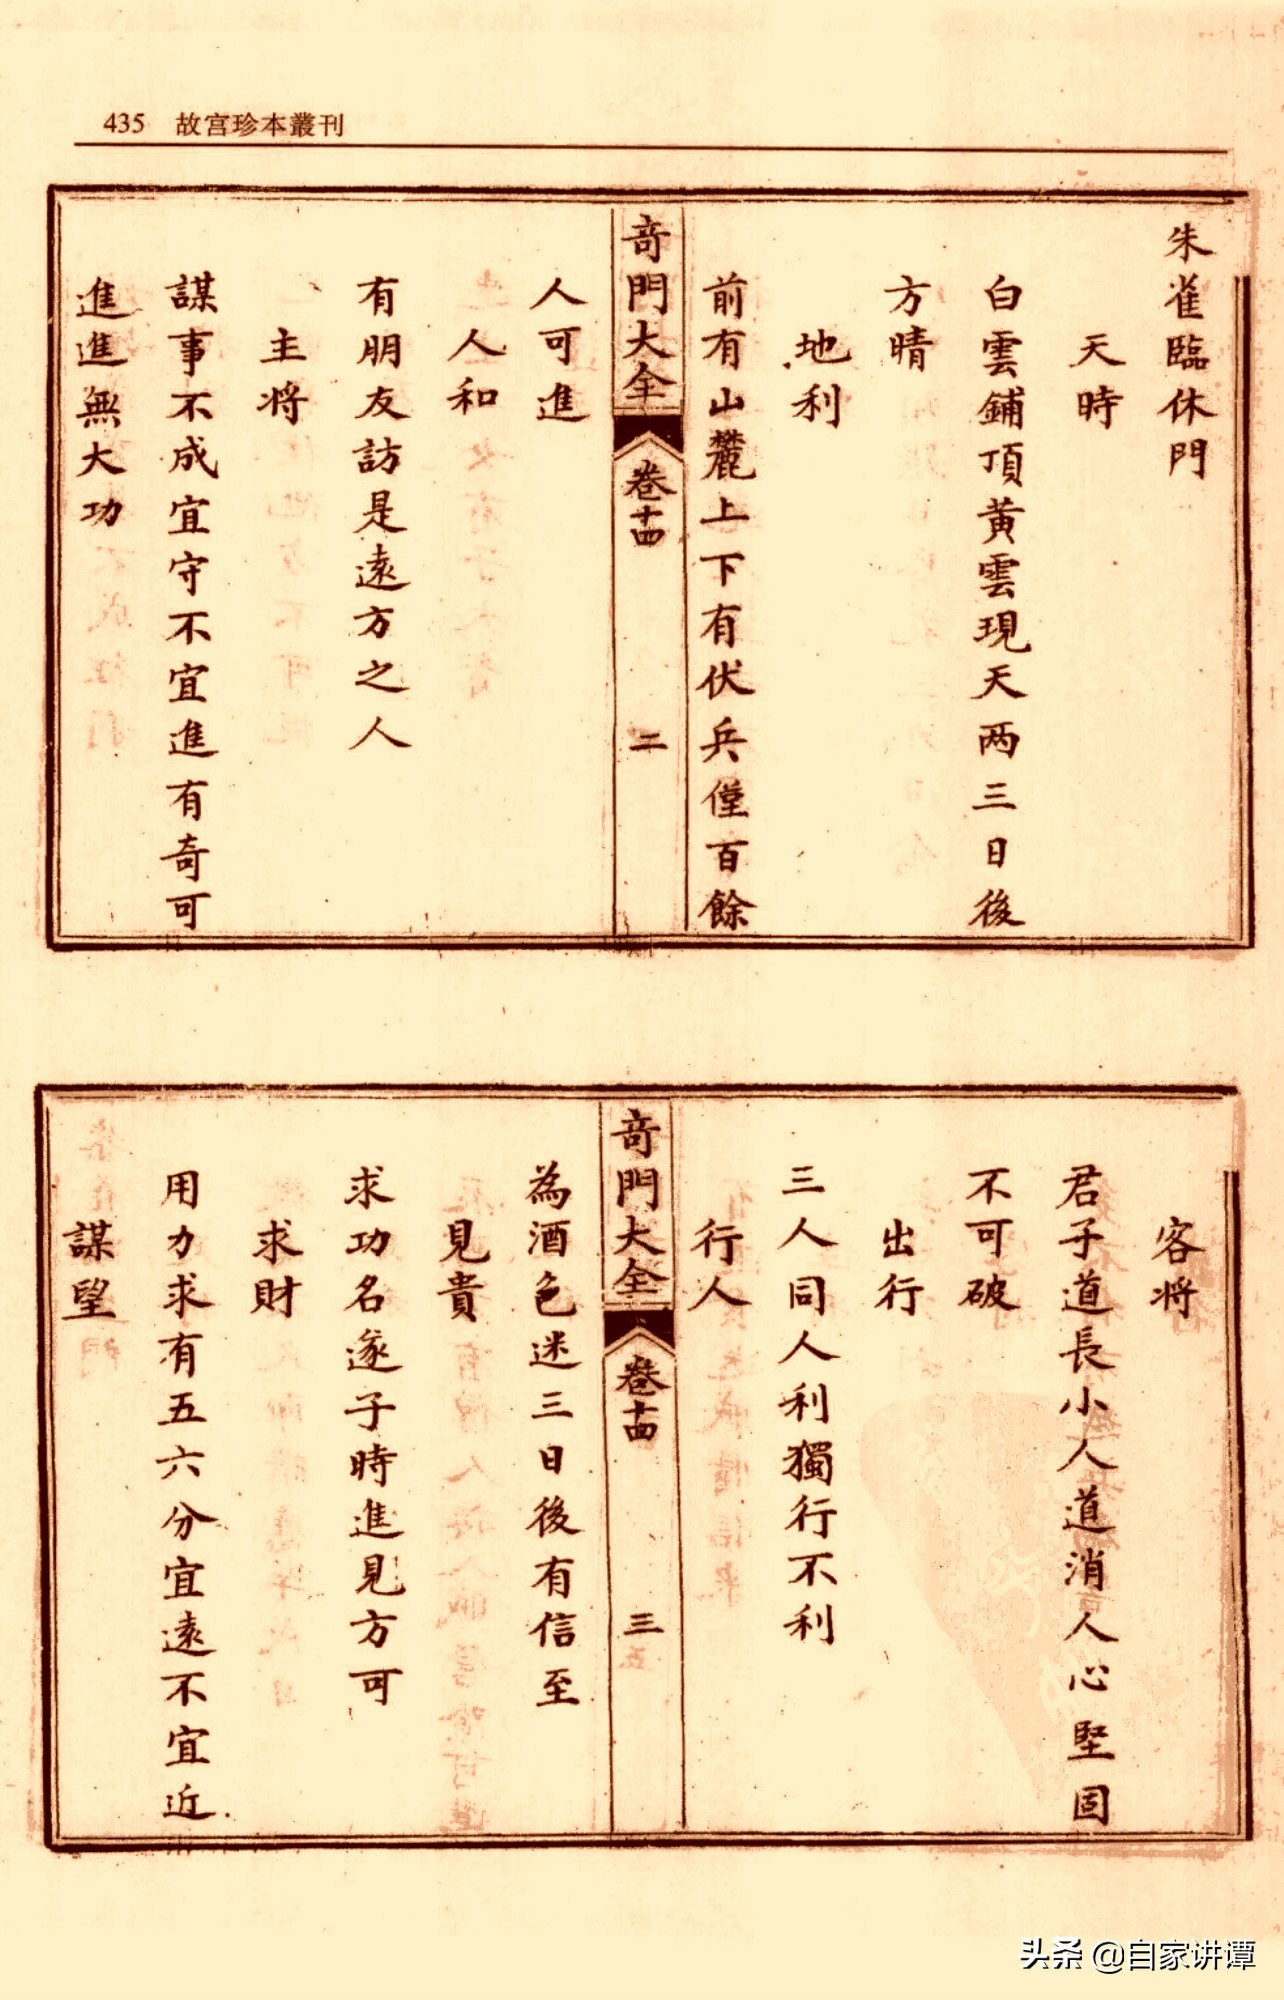 435 故宫珍本叢刊
朱雀臨休門
天時
白雲鋪頂黃雲現天两三日後
方晴
地利
前有山麓上下有伏兵僅百餘
奇門大全 卷十四 二
人可進
人和
有朋友訪是遠方之人
主将
謀事不成宜守不宜進有奇可
進進無大功
客将
君子道長小人道消人心堅固
不可破
出行
三人同人利獨行不利
行人
奇門大全 卷十四 三
為酒色迷三日後有信至
見貴
求功名遂子時進見方可
求財
用力求有五六分宜遠不宜近
謀望
头条 @自家讲谭